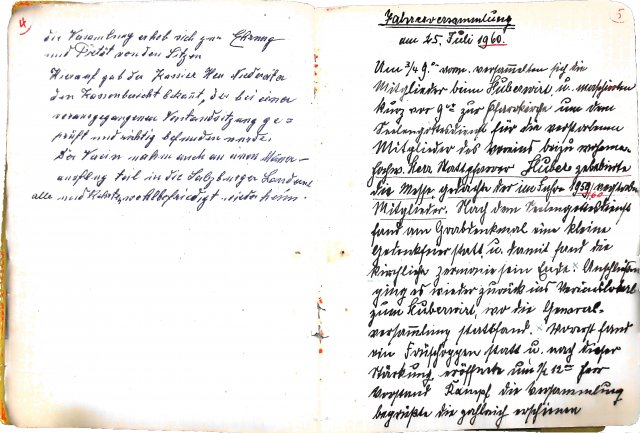 4
die Versammlung erhob sich zur Ehrung
und Pietät von den Sitzen
Hierauf gab der Kassier Herr
den Kassenbericht bekannt, der bei einer
vorangegangenen Vorstandsitzung ge=
prüft und richtig befunden wurde.
Der Verein nahm auch an einem
ausflug teil in die Salzburger Landen
alle und wohlbefriedigt wieder heim.
5
Jahresversammlung
am 25. Juli 1960.
Um 3/4 9 Uhr vorm. versammelten sich die
Mitglieder beim Huberwirt u. marschierten
kurz vor 9 Uhr zur Pfarrkirche um dem
Seelengottesdienst für die verstorbenen
Mitglieder des Vereins beizuwohnen.
Hochw. Herr Stadtpfarrer Huber zelebrierte
die Messe, gedachte der im Jahre 1959/60 verstorb.
Mitglieder. Nach dem Seelengottesdienst
fand am Grabdenkmal eine kleine
Gedenkfeier statt u. damit fand die
kirchliche zermonie sein Ende. Anschließen
ging es wieder zurück ins Vereinslokal
zum Huberwirt, wo die General-
versammlung stattfand. Vorerst fand
ein Frühschoppen statt u. nach dieser
Stärkung, eröffnete um 1/2 12 Uhr Herr
Vorstand Kampf die Versammlung
begrüßte die zahlreich erschienen